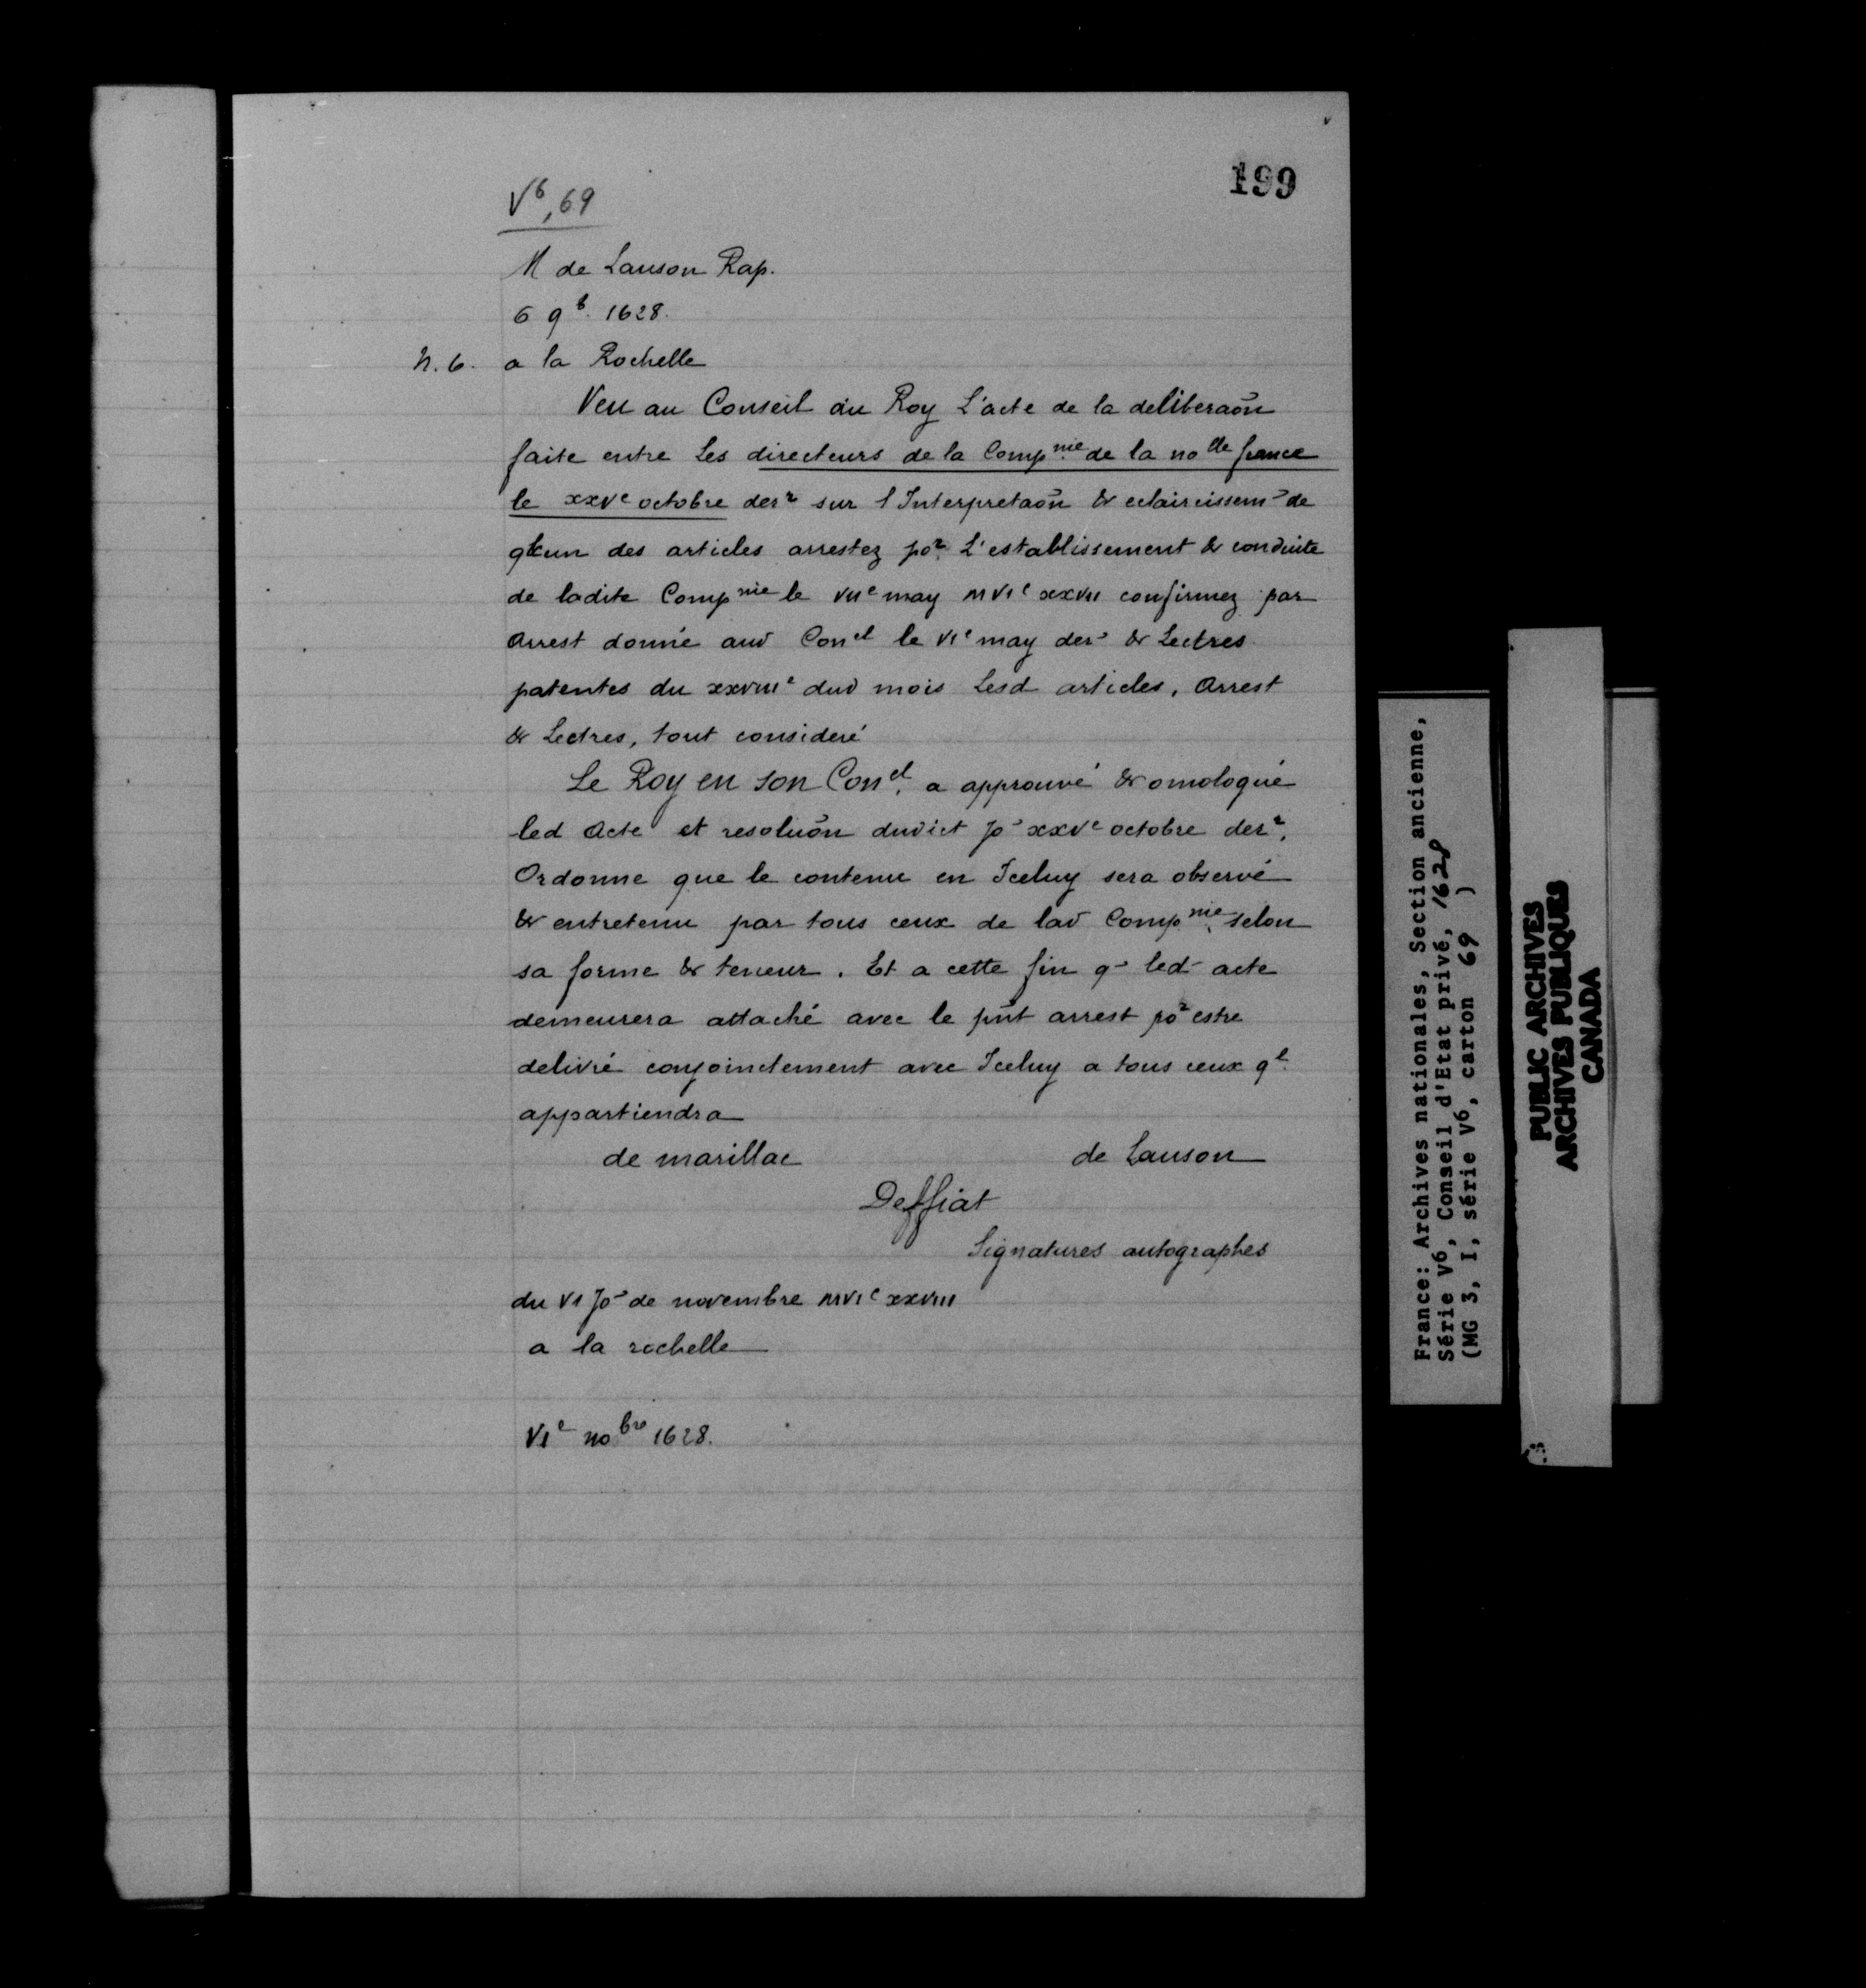 199
V⁶, 69
M de Lauson Rap.
6 9ᵇ. 1628.
n. 6. a la Rochelle
Veu au Conseil du Roy L'acte de la deliberaõn
faite entre Les directeurs de la Compⁿⁱᵉ de la noˡˡᵉ france
le xxvᵉ octobre derʳ sur l Interpretaõn & eclaircissemᵗ de
qlcun des articles arrestez poʳ L'establissement & conduite
de ladite Compⁿⁱᵉ le VIIᵉ may MVIᶜ xxvII confirmez par
Arrest donné aud Conᵉˡ le VIᵉ may derʳ & Lectres
patentes du xxvIIIᵉ dud mois Lesd articles, Arrest
& Lectres, tout consideré
Le Roy en son Conᵉˡ. a approuvé & omologué
led Acte et resoluõn dudict Joʳ xxvᵉ octobre derʳ.
Ordonne que le contenu en Iceluy sera observé
& entretenu par tous ceux de lad Compⁿⁱᵉ. selon
sa forme & teneur. Et a cette fin q~ led acte
demeurera attaché avec le pn̄t arrest poʳ estre
delivré conjoinctement avec Iceluy a tous ceux qˡ.
appartiendra
de marillac de Lauson
Deffiat
Signatures autographes
du VI Joʳ de novembre MVIᶜ xxvIII
a la rochelle
VIᵉ noᵇʳᵉ 1628.
France: Archives nationales, Section ancienne,
Série V6, Conseil d'Etat privé, 1628
(MG 3, I, série V6, carton 69 )
PUBLIC ARCHIVES
ARCHIVES PUBLIQUES
CANADA